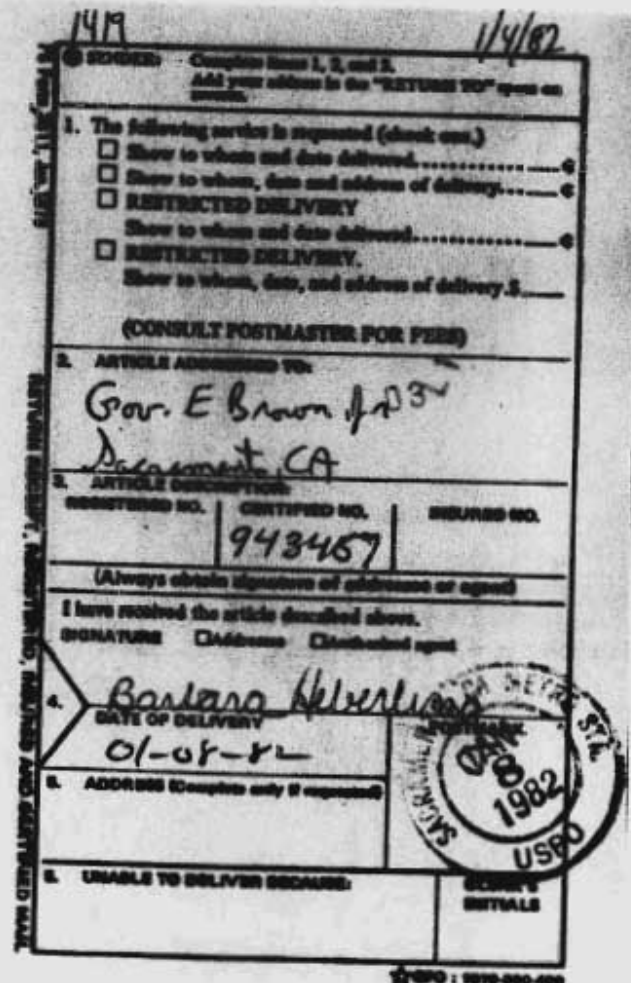 1419 1/4/82
SENDER: Complete items 1, 2, and 3.
Add your address in the "RETURN TO" space on
reverse.
1. The following service is requested (check one.)
☐ Show to whom and date delivered............ ¢
☐ Show to whom, date and address of delivery... ¢
☐ RESTRICTED DELIVERY
Show to whom and date delivered............ ¢
☐ RESTRICTED DELIVERY.
Show to whom, date, and address of delivery. $
(CONSULT POSTMASTER FOR FEES)
2. ARTICLE ADDRESSED TO:
Gov. E Brown Jr
Sacramento, CA
3. ARTICLE DESCRIPTION:
REGISTERED NO. CERTIFIED NO. INSURED NO.
943457
(Always obtain signature of addressee or agent)
I have received the article described above.
SIGNATURE ☐Addressee ☐Authorized agent
4. Barbara Heberling
DATE OF DELIVERY POSTMARK
01-08-82
SACRAMENTO CA METRO STA.
JAN 8 1982
USPO
5. ADDRESS (Complete only if requested)
6. UNABLE TO DELIVER BECAUSE: CLERK'S
INITIALS
RETURN RECEIPT, REGISTERED, INSURED AND CERTIFIED MAIL